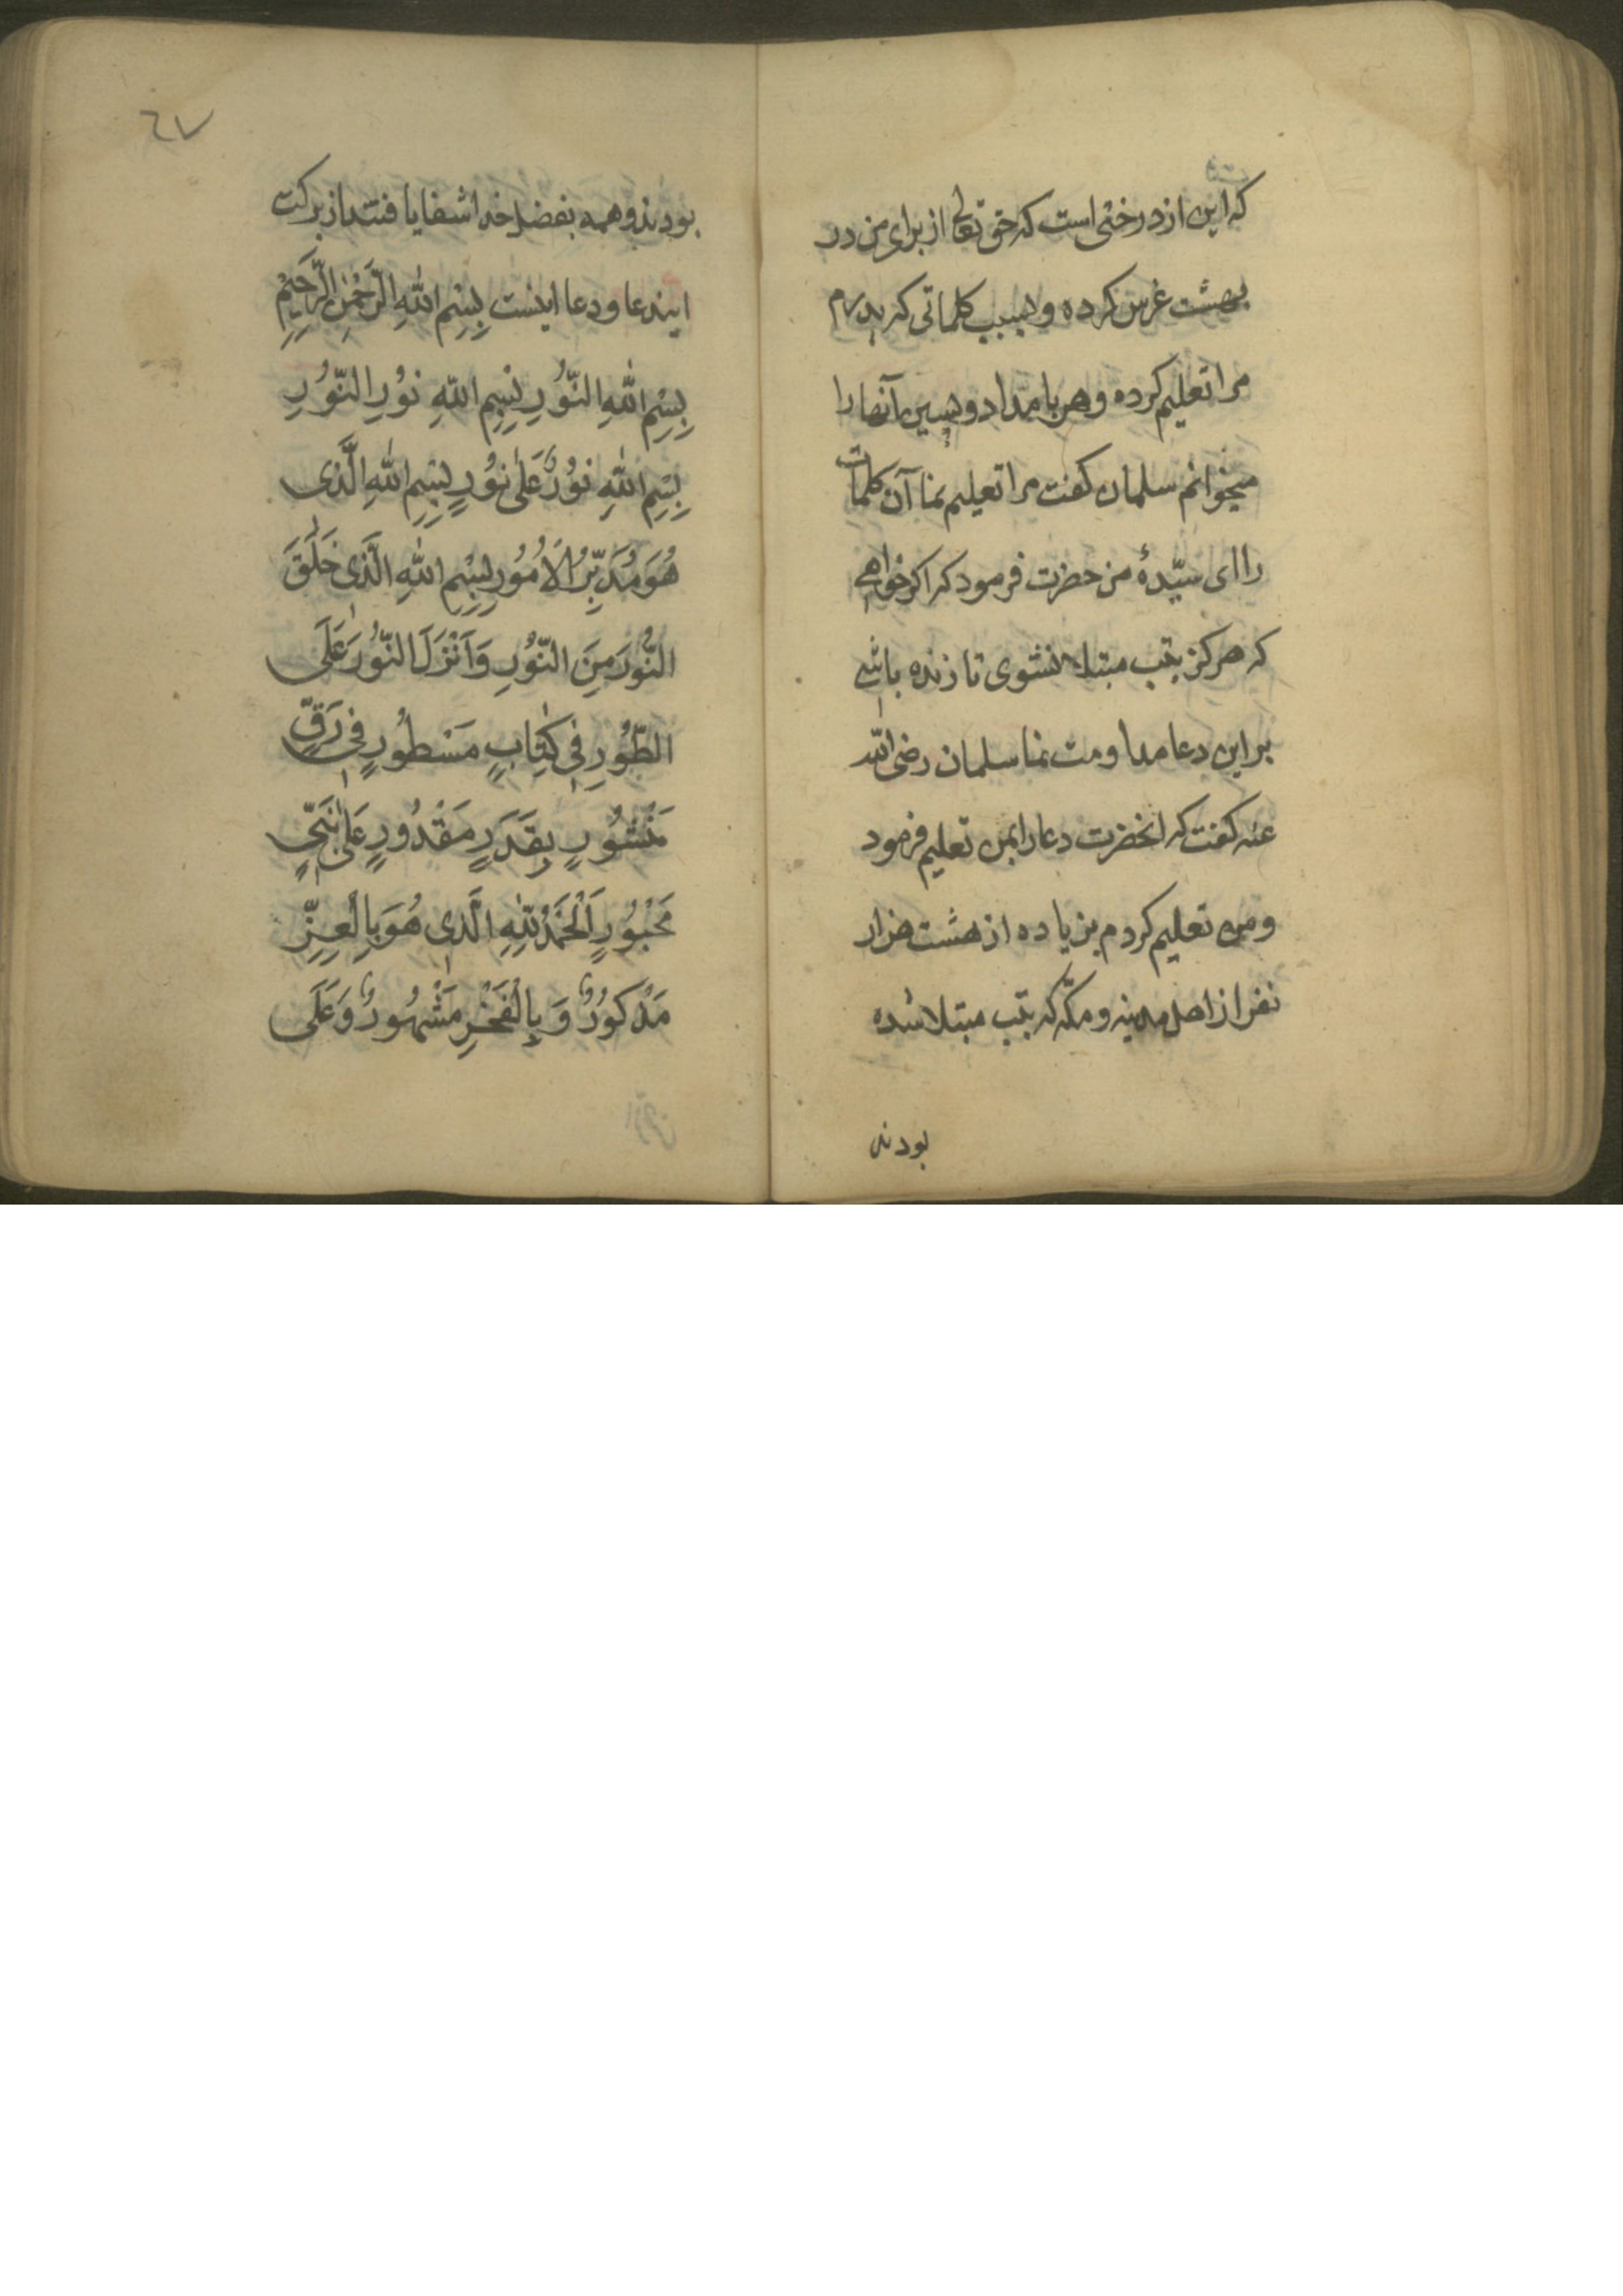 که این از درختی است که حق تعالی از برای من در
بهشت غرس کرده و بسبب کلماتی که پدرم
مرا تعلیم کرده و هر بامداد و پسین آنها را
میخوانم سلمان کفت مرا تعلیم نما آن کلمات
را ای سیّدهٔ من حضرت فرمود که اکر خواهی
که هرکز بتب مبتلا نشوی تا زنده باشی
بر این دعا مداومت نما سلمان رضی الله
عنه کفت که انحضرت دعا را بمن تعلیم فرمود
و من تعلیم کردم بزیاده از هشت هزار
نفر از اهل مدینه و مکّه که بتب مبتلا شده
بودند
٦٧
بودند و همه بفضل خدا شفا یافتند از برکت
ایندعا و دعا اینست بِسْمِ اللهِ الرَّحْمٰنِ الرَّحِیْمِ
بِسْمِ اللهِ النُّوْرِ بِسْمِ اللهِ نُوْرِ النُّوْرِ
بِسْمِ اللهِ نُوْرٌ عَلٰی نُوْرٍ بِسْمِ اللهِ الَّذی
هُوَ مُدَبِّرُ الْاُمُوْرِ بِسْمِ اللهِ الَّذی خَلَقَ
النُّوْرَ مِنَ النُّوْرِ وَ اَنْزَلَ النُّوْرَ عَلَی
الطُّوْرِ فِی کِتٰابٍ مَسْطُوْرٍ فی رَقٍّ
مَنْشُوْرٍ بِقَدَرٍ مَقْدُورٍ عَلٰی نَبِیٍّ
مَحْبُوْرٍ اَلْحَمْدُ لِلّٰهِ الَّذی هُوَ بِالْعِزِّ
مَذْکُوْرٌ وَ بِالْفَخْرِ مَشْهُوْرٌ وَ عَلَی